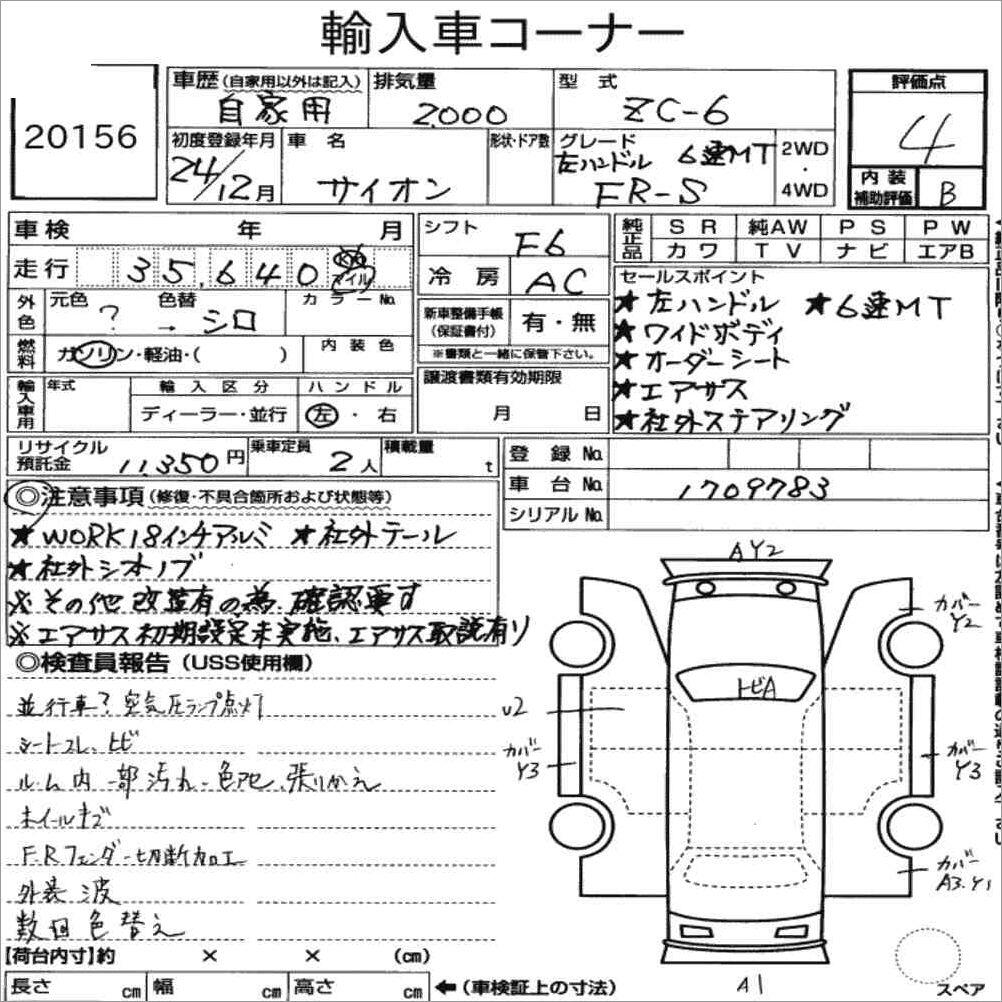 輸入車コーナー
20156
車歴(自家用以外は記入) 自家用
排気量 2000
型式 ZC-6
評価点 4
初度登録年月 24/12月
車名 サイオン
形状・ドア数
グレード 左ハンドル 6速MT FR-S
2WD・4WD
内装補助評価 B
車検 年 月
走行 35,640 マイル
シフト F6
冷房 AC
純正品 SR 純AW PS PW
カワ TV ナビ エアB
外色 元色 ? → 色替 シロ カラーNo.
燃料 ガソリン・軽油・( ) 内装色
新車整備手帳(保証書付) 有・無
※書類と一緒に保管下さい。
セールスポイント
★左ハンドル ★6速MT
★ワイドボディ
★オーダーシート
★エアサス
★社外ステアリング
輸入車用 年式 輸入区分 ディーラー・並行 ハンドル 左・右
譲渡書類有効期限 月 日
リサイクル預託金 11,350円
乗車定員 2人
積載量 t
登録No.
車台No. 1709783
シリアルNo.
◎注意事項(修復・不具合箇所および状態等)
★WORK18インチアルミ ★社外テール
★社外シフトノブ
※その他改造有の為確認要す
※エアサス初期設定未実施、エアサス取説有り
◎検査員報告(USS使用欄)
並行車? 空気圧ランプ点灯
シートスレ、トビ
ルーム内一部汚れ・色アセ、張りかえ
ホイールキズ
F.Rフェンダー切断加工
外装 波
数回色替え
AY2
カバーY2
トビA
U2
カバーY3
カバーY3
カバーA3.Y1
A1
スペア
【荷台内寸】約 × × (cm)
長さ cm 幅 cm 高さ cm ←(車検証上の寸法)